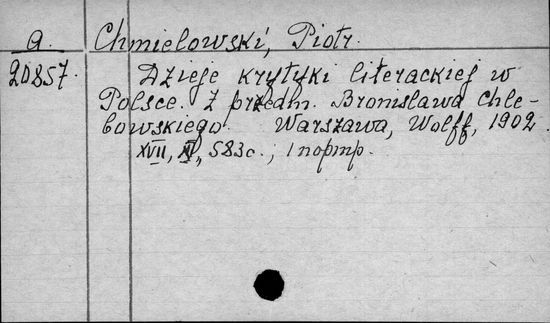 a. Chmielowski, Piotr.
20857. Dzieje krytyki literackiej w
Polsce. Z przedm. Bronisława Chle-
bowskiego. Warszawa, Wolff, 1902.
XVII, XV, 583 с.; 1 портр.